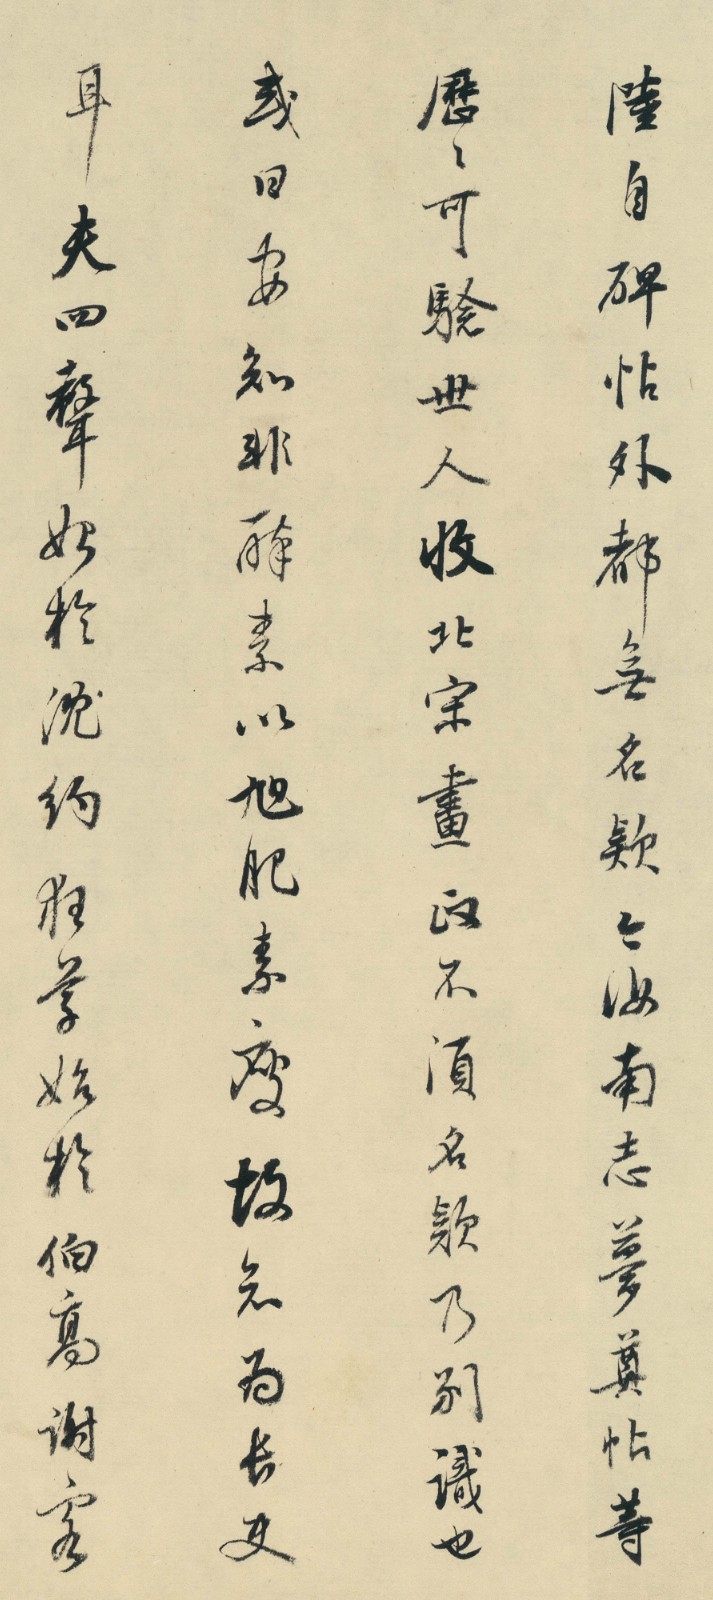 陸自碑帖外都無名款今汝南志夢奠帖等
歷歷可驗世人收北宋畫政不須名款乃別識也
或曰安知非醉素以旭肥素瘦故定為長史
耳夫四聲始於沈約狂草始於伯高謝客